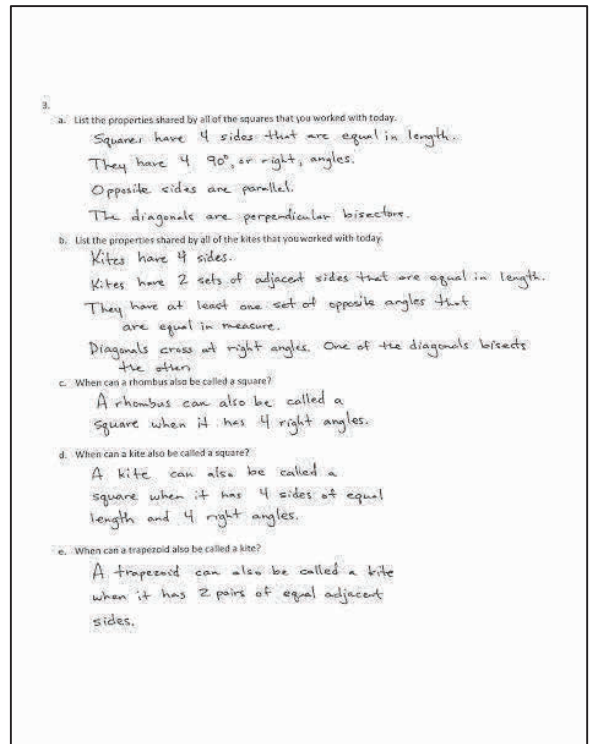 3.
a. List the properties shared by all of the squares that you worked with today.
Squares have 4 sides that are equal in length.
They have 4 90°, or right, angles.
Opposite sides are parallel.
The diagonals are perpendicular bisectors.
b. List the properties shared by all of the kites that you worked with today.
Kites have 4 sides.
Kites have 2 sets of adjacent sides that are equal in length.
They have at least one set of opposite angles that
are equal in measure.
Diagonals cross at right angles. One of the diagonals bisects
the other.
c. When can a rhombus also be called a square?
A rhombus can also be called a
square when it has 4 right angles.
d. When can a kite also be called a square?
A kite can also be called a
square when it has 4 sides of equal
length and 4 right angles.
e. When can a trapezoid also be called a kite?
A trapezoid can also be called a kite
when it has 2 pairs of equal adjacent
sides.